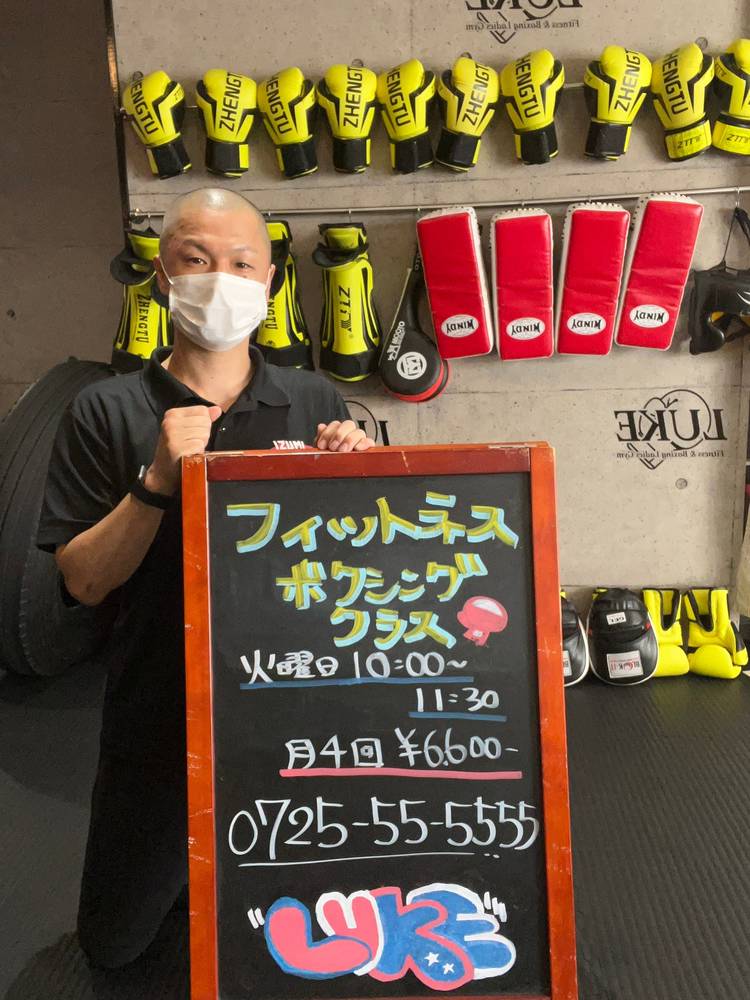 LUKE
Fitness & Boxing Ladies Gym
ZHENGTU
ZHENGTU
ZHENGTU
ZHENGTU
ZHENGTU
ZHENGTU
ZHENGTU
ZHENGTU
ZHENGTU
ZTTY
ZHENGTU
ZTTY
WINDY
WINDY
WINDY
WINDY
LUKE
Fitness & Boxing Ladies Gym
フィットネス
ボクシング
クラス
火曜日 10:00~
11:30
月4回 ¥6.600-
0725-55-5555
"LUKE"